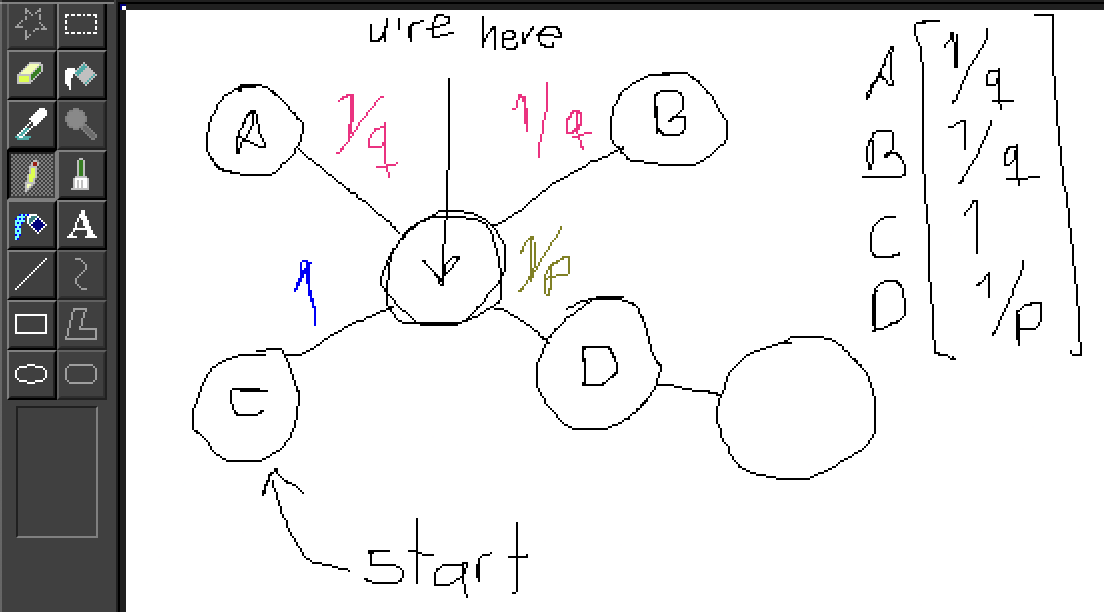 u're here
A 1/q 1/q B
1/p
1
C
D
start
A 1/q
B 1/q
C 1
D 1/p
A